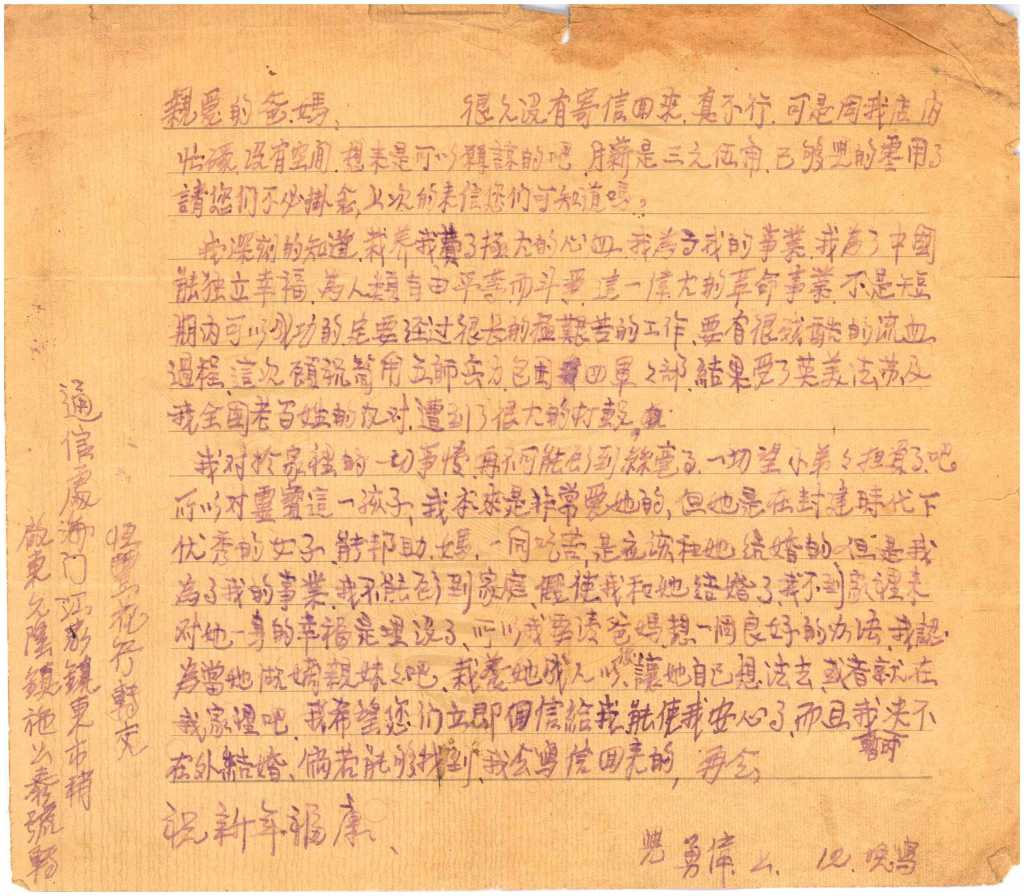 親愛的爸媽、 很久没有寄信回來,真不行,可是因我店内
忙碌,没有空间,想来是可以願諒的吧,月薪是三元伍角,已够兒的零用了
請您们不必掛念,上次的来信您们可知道吗。
我深刻的知道,栽养我費了極大的心血,我為了我的事業,我為了中國
能独立幸福,為人類自由平等而斗爭,這一偉大的革命事業,不是短
期内可以成功的,定要经过很长的極艱苦的工作,要有很残酷的流血
過程,這次顧祝同用五师兵力包围四軍々部,結果受了英美法苏及
我全国老百姓的反对,遭到了很大的打擊。
我对於家裡的一切事情,再不可能顾到絲毫了,一切望小弟々担負了吧
所以对靈寶這一孩子,我本來是非常愛她的,但她是在封建時代下
优秀的女子,能帮助媽,一同吃苦,是应該和她结婚的,但是我
為了我的事業,我不能顾到家庭,假使我和她结婚了,我不到家裡来
对她一身的幸福是埋没了,所以我要请爸媽想一個良好的办法,我認
為當他做嫡親妹々吧,栽養她成人以後讓她自己想法去,或者就在
我家裡吧,我希望您们立即回信給我,能使我安心了,而且我决不
暫时
在外结婚,倘若能够找到,我会写信回来的,再会
祝新年福康、
兒 勇偉. 2. 12. 晚写
通信處海门江家鎮東市稍
恒豐花行轉交
啟東久隆鎮施公泰號轉